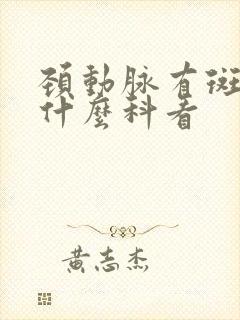 頚動脉有斑
什麼科看
黄志杰